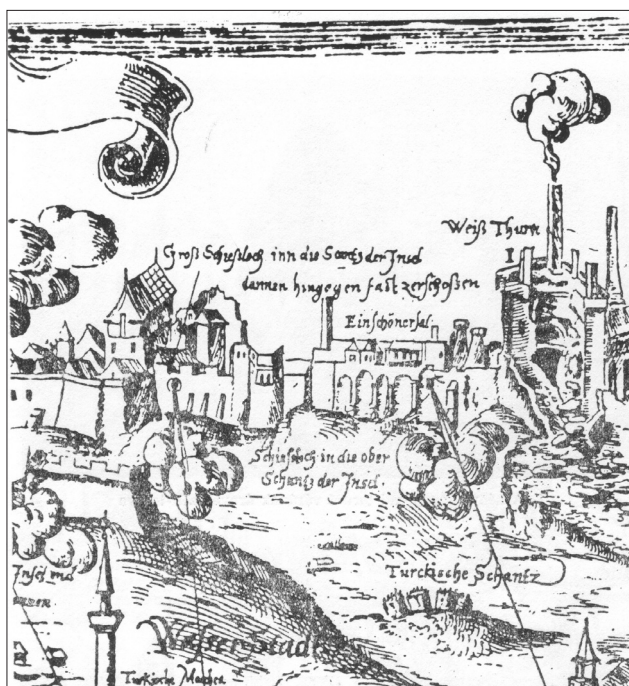 Weiß Thurn
I
Groß Schießloch inn die Schantz der Insel
dannen hingegen fast zerschoßen
Ein schöner sal
Schießloch in die ober
Schantz der Insel
Türckische Schantz
Insel
Wasser Stadt
Türkische